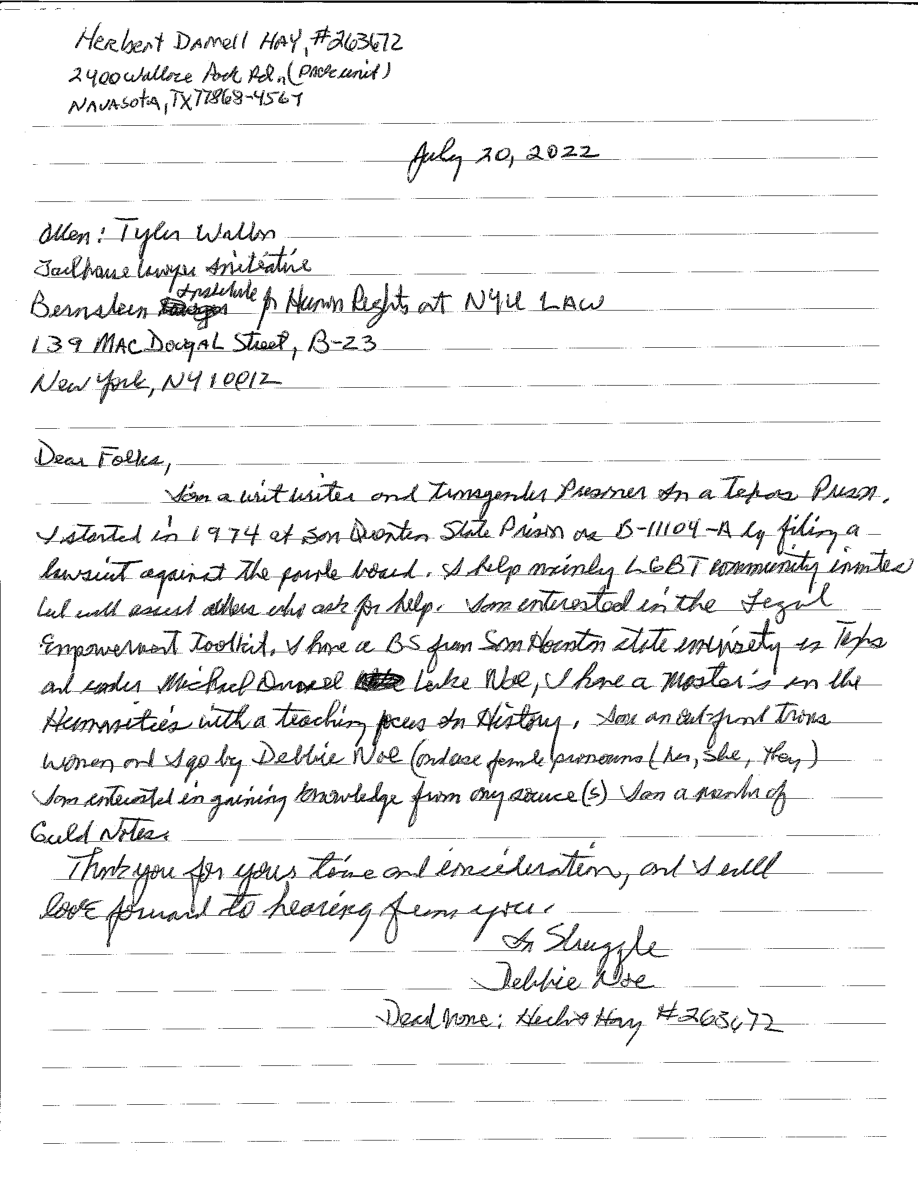 Herbert Darnell HAY, #263672
2400 Wallace Pack Rd., (Pack unit)
NAVASOTA, TX 77868-4567
July 20, 2022
Atten: Tyler Walton
Jailhouse lawyer initiative
Bernstein Institute for Human Rights at NYU LAW
139 MAC DOUGAL Street, B-23
New York, NY 10012
Dear Folks,
I'am a writ writer and Transgender Prisoner in a Texas Prison.
I started in 1974 at San Quentin State Prison as B-11104-A by filing a
lawsuit against the parole board. I help mainly LGBT community inmates
but will assist others who ask for help. I am interested in the Legal
Empowerment Toolkit. I have a BS from Sam Houston state university in Texas
and under Michael Luke Noe, I have a Master's in the
Humanities with a teaching focus in History. I am an out-front trans
women and I go by Debbie Noe (and use female pronouns (her, she, they)
I am interested in gaining knowledge from any source(s) I am a member of
Guild Notes.
Thank you for yours time and consideration, and I will
look forward to hearing from you.
In Struggle
Debbie Noe
Dead name: Herbert Hay #263672